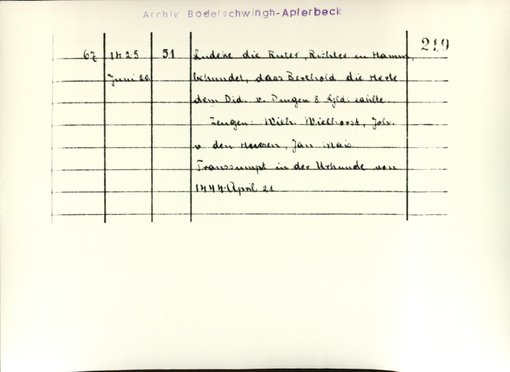 Archiv Bodelschwingh-Aplerbeck
219
67 1425 51 Ludeke die Ruler, Richter in Hamm,
Juni 20 bekundet, dass Berthold die Herte
dem Did. v. Pungen 8 Gld. zahlte.
Zeugen: Wilh. Wielhorst, Joh.
v. den Hoesen, Jan Mais
Transsumpt in der Urkunde von
1444 April 21